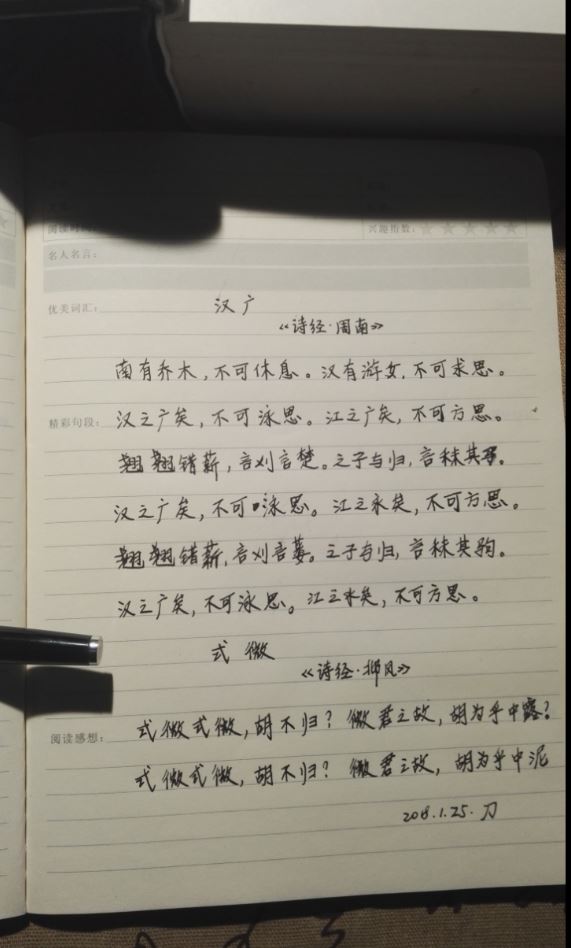 阅读时间:
兴趣指数:
名人名言:
优美词汇:
汉广
《诗经·周南》
南有乔木,不可休息。汉有游女,不可求思。
精彩句段:
汉之广矣,不可泳思。江之广矣,不可方思。
翘翘错薪,言刈言楚。之子于归,言秣其
汉之广矣,不可泳思。江之永矣,不可方思。
翘翘错薪,言刈言蒌。之子于归,言秣其驹。
汉之广矣,不可泳思。江之永矣,不可方思。
式微
《诗经·邶风》
阅读感想:
式微式微,胡不归?微君之故,胡为乎中露?
式微式微,胡不归?微君之故,胡为乎中泥
2018.1.25.刀